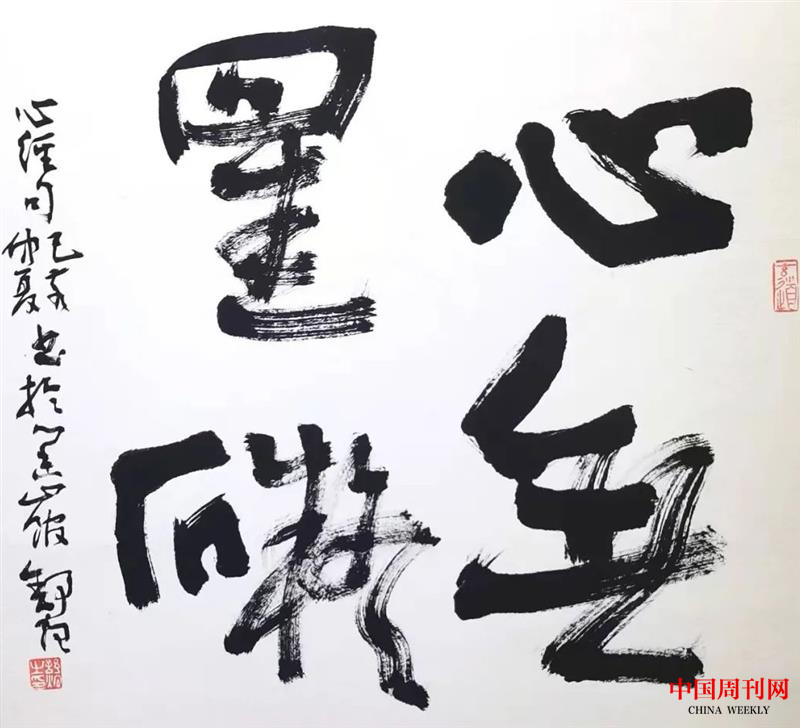 心無
罣礙
心經句
己亥
仲夏
书於
中国周刊网
CHINA WEEKLY